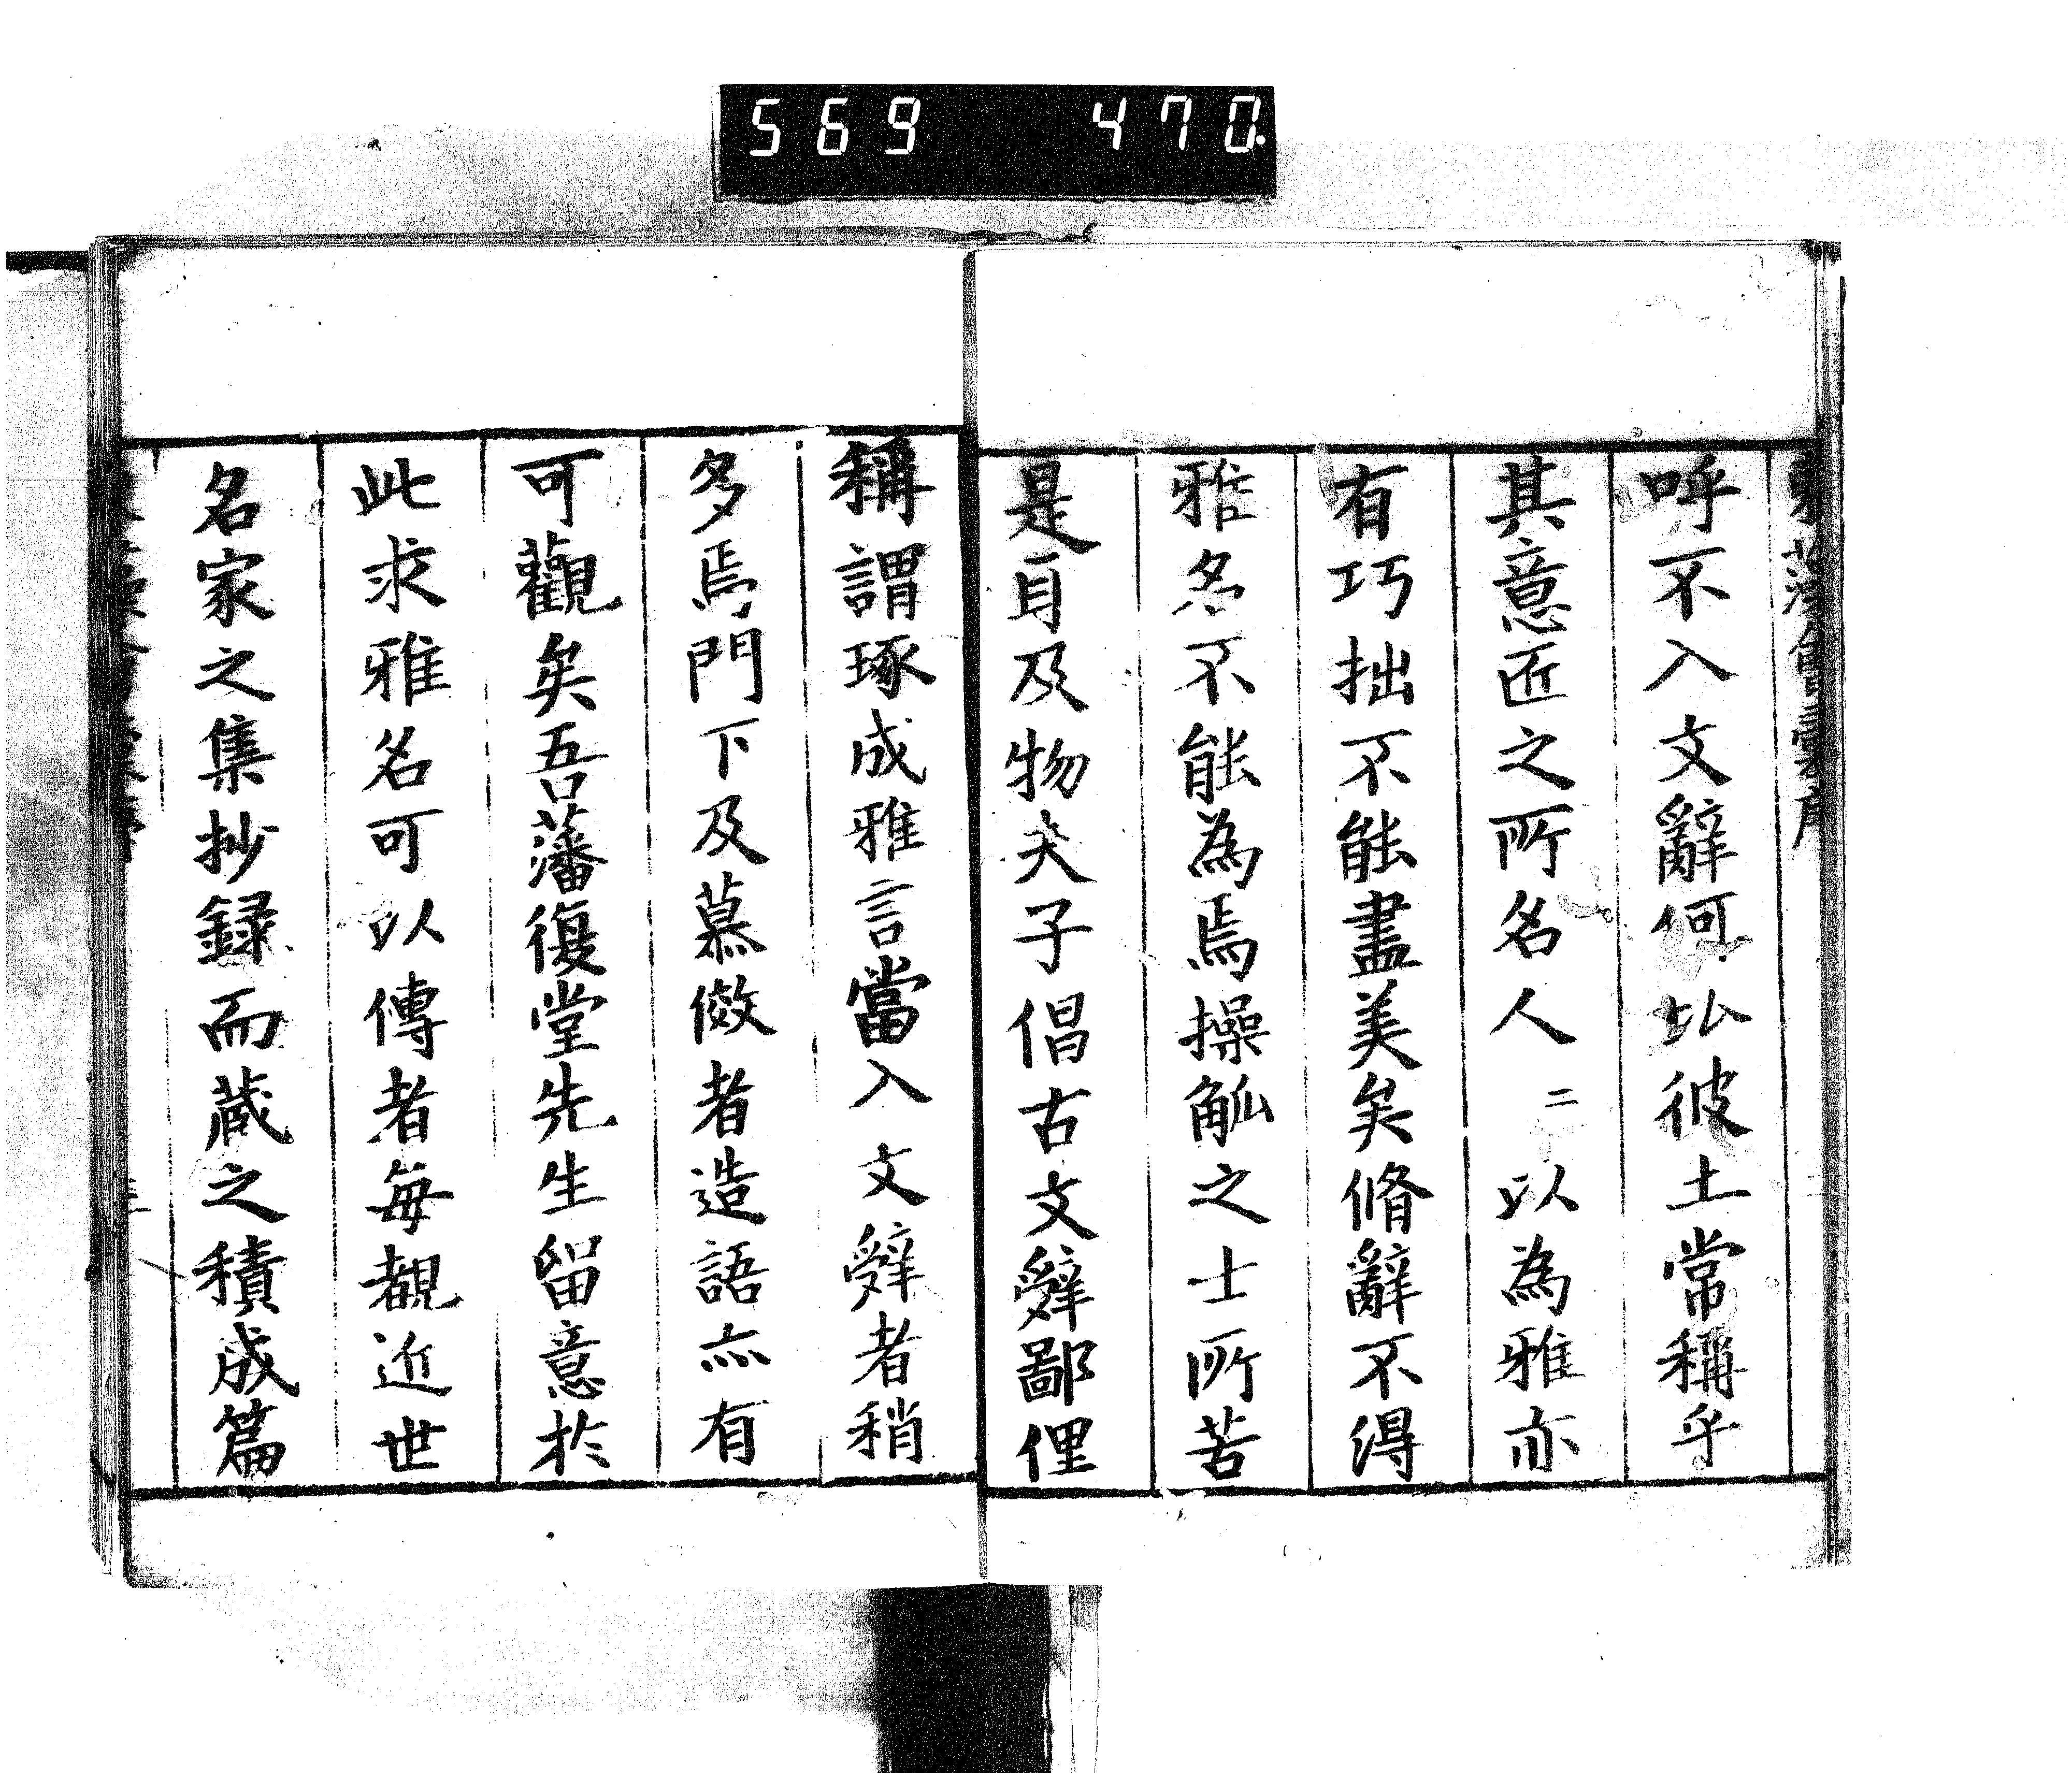 569 470.
呼不入文辭何以彼土常稱乎
其意匠之所名人二以為雅亦
有巧拙不能盡美矣脩辭不得
雅名不能為焉操觚之士所苦
是自及物夫子倡古文辭鄙俚
稱謂琢成雅言當入文辭者稍
多焉門下及慕傚者造語亦有
可觀矣吾藩復堂先生留意於
此求雅名可以傳者每覩近世
名家之集抄録而蔵之積成篇